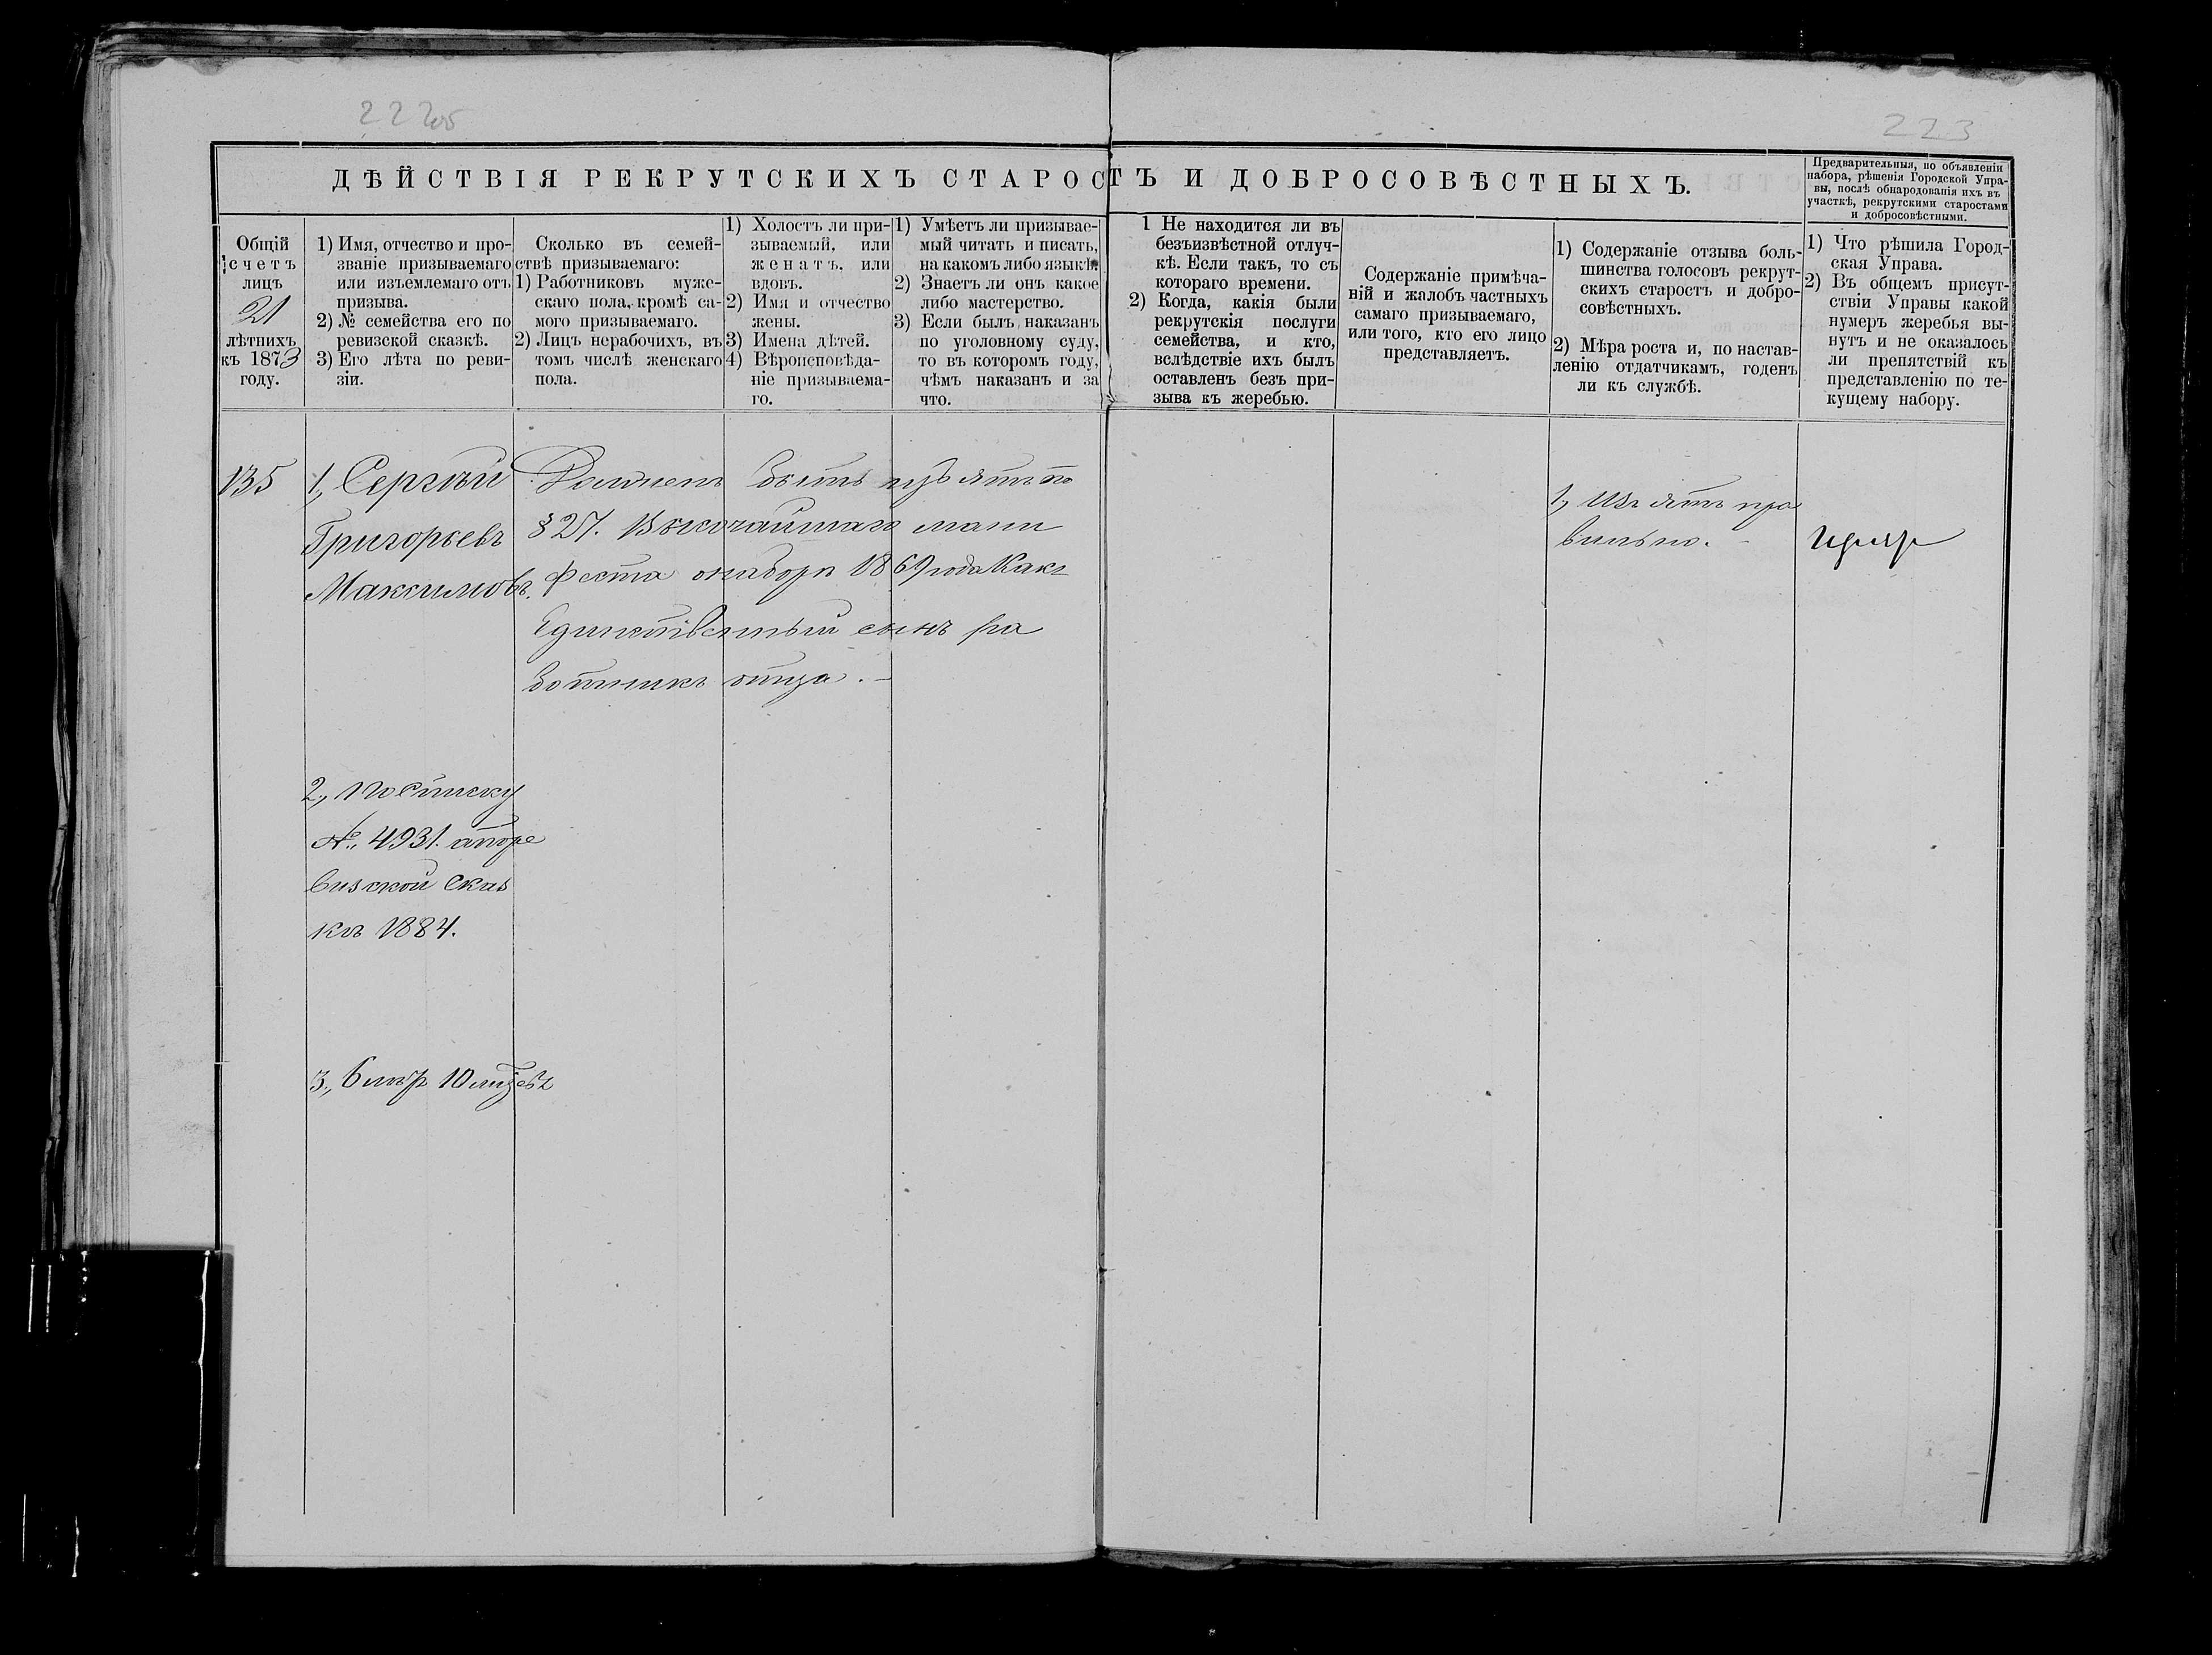 222об
223
ДѢЙСТВІЯ РЕКРУТСКИХЪ СТАРОСТЪ И ДОБРОСОВѢСТНЫХЪ.
Предварительныя, по объявленіи
набора, рѣшенія Городской Упра-
вы, послѣ обнародованія ихъ въ
участкѣ, рекрутскими старостами
и добросовѣстными.
Общій
счетъ
лицъ
21
лѣтнихъ
къ 1873
году.
1) Имя, отчество и про-
званіе призываемаго
или изъемлемаго отъ
призыва.
2) № семейства его по
ревизской сказкѣ.
3) Его лѣта по реви-
зіи.
Сколько въ семей-
ствѣ призываемаго:
1) Работниковъ муже-
скаго пола, кромѣ са-
мого призываемаго.
2) Лицъ нерабочихъ, въ
томъ числѣ женскаго
пола.
1) Холостъ ли при-
зываемый, или
женатъ, или
вдовъ.
2) Имя и отчество
жены.
3) Имена дѣтей.
4) Вѣроисповѣда-
ніе призываема-
го.
1) Умѣетъ ли призывае-
мый читать и писать,
на какомъ либо языкѣ.
2) Знаетъ ли онъ какое
либо мастерство.
3) Если былъ наказанъ
по уголовному суду,
то въ которомъ году,
чѣмъ наказанъ и за
что.
1 Не находится ли въ
безъизвѣстной отлуч-
кѣ. Если такъ, то съ
котораго времени.
2) Когда, какія были
рекрутскія послуги
семейства, и кто,
вслѣдствіе ихъ былъ
оставленъ безъ при-
зыва къ жеребью.
Содержаніе примѣча-
ній и жалобъ частныхъ
самаго призываемаго,
или того, кто его лицо
представляетъ.
1) Содержаніе отзыва боль-
шинства голосовъ рекрут-
скихъ старостъ и добро-
совѣстныхъ.
2) Мѣра роста и, по настав-
ленію отдатчикамъ, годенъ
ли къ службѣ.
1) Что рѣшила Город-
ская Управа.
2) Въ общемъ присут-
ствіи Управы какой
нумеръ жеребья вы-
нутъ и не оказалось
ли препятствій къ
представленію по те-
кущему набору.
135
1, Сергѣй
Григорьевъ
Максимовъ.
Долженъ быть изъятъ по
§ 27. Высочайшаго мани
феста о наборѣ 1869 года Какъ
Единственный сынъ ра
ботникъ отца. –
1, Изъятъ пра
вильно. –
2, По списку
№ 4931. а по ре
визской сказ
кѣ 1884.
3, 6 лѣтъ 10 мѣсяц